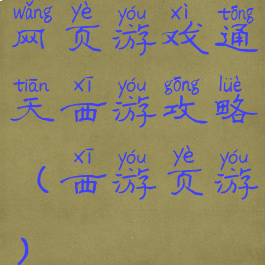 wǎng yè yóu xì tōng
网页游戏通
tiān xī yóu gōng lüè
天西游攻略
xī yóu yè yóu
（西游页游
）